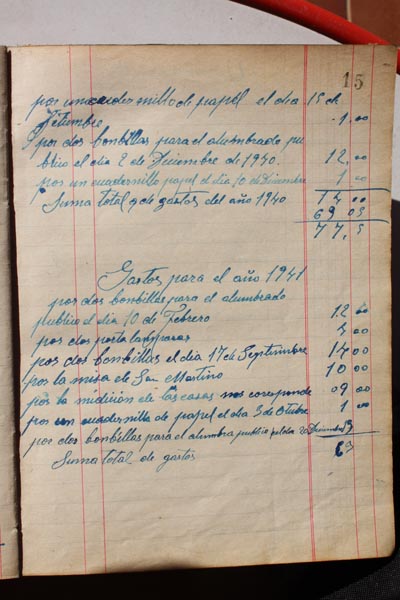 15
por un cuadernillo de papel el dia 15 de
Setumbre 1.00
por dos bonbillas para el alumbrado pu
blico el dia 2 de Diciembre de 1940. 12,00
por un cuadernillo papel el dia 10 de Diciembre 1 00
Suma total de gastos del año 1940 14 00
63 05
77,5
Gastos para el año 1941
por dos bonbillas para el alumbrado
publico el dia 10 de Febrero 12 00
por dos porta lamparas 00
por dos bonbillas el dia 17 de Septiembre 14 00
por la misa de San Martino 10 00
por la midicion de las casas nos coresponde 09 00
por un cuadernillo de papel el dia 3 de Otubre 1 00
por dos bonbillas para el alumbra publico el dia 20 Diciembre 13
Suma total de gastos 63